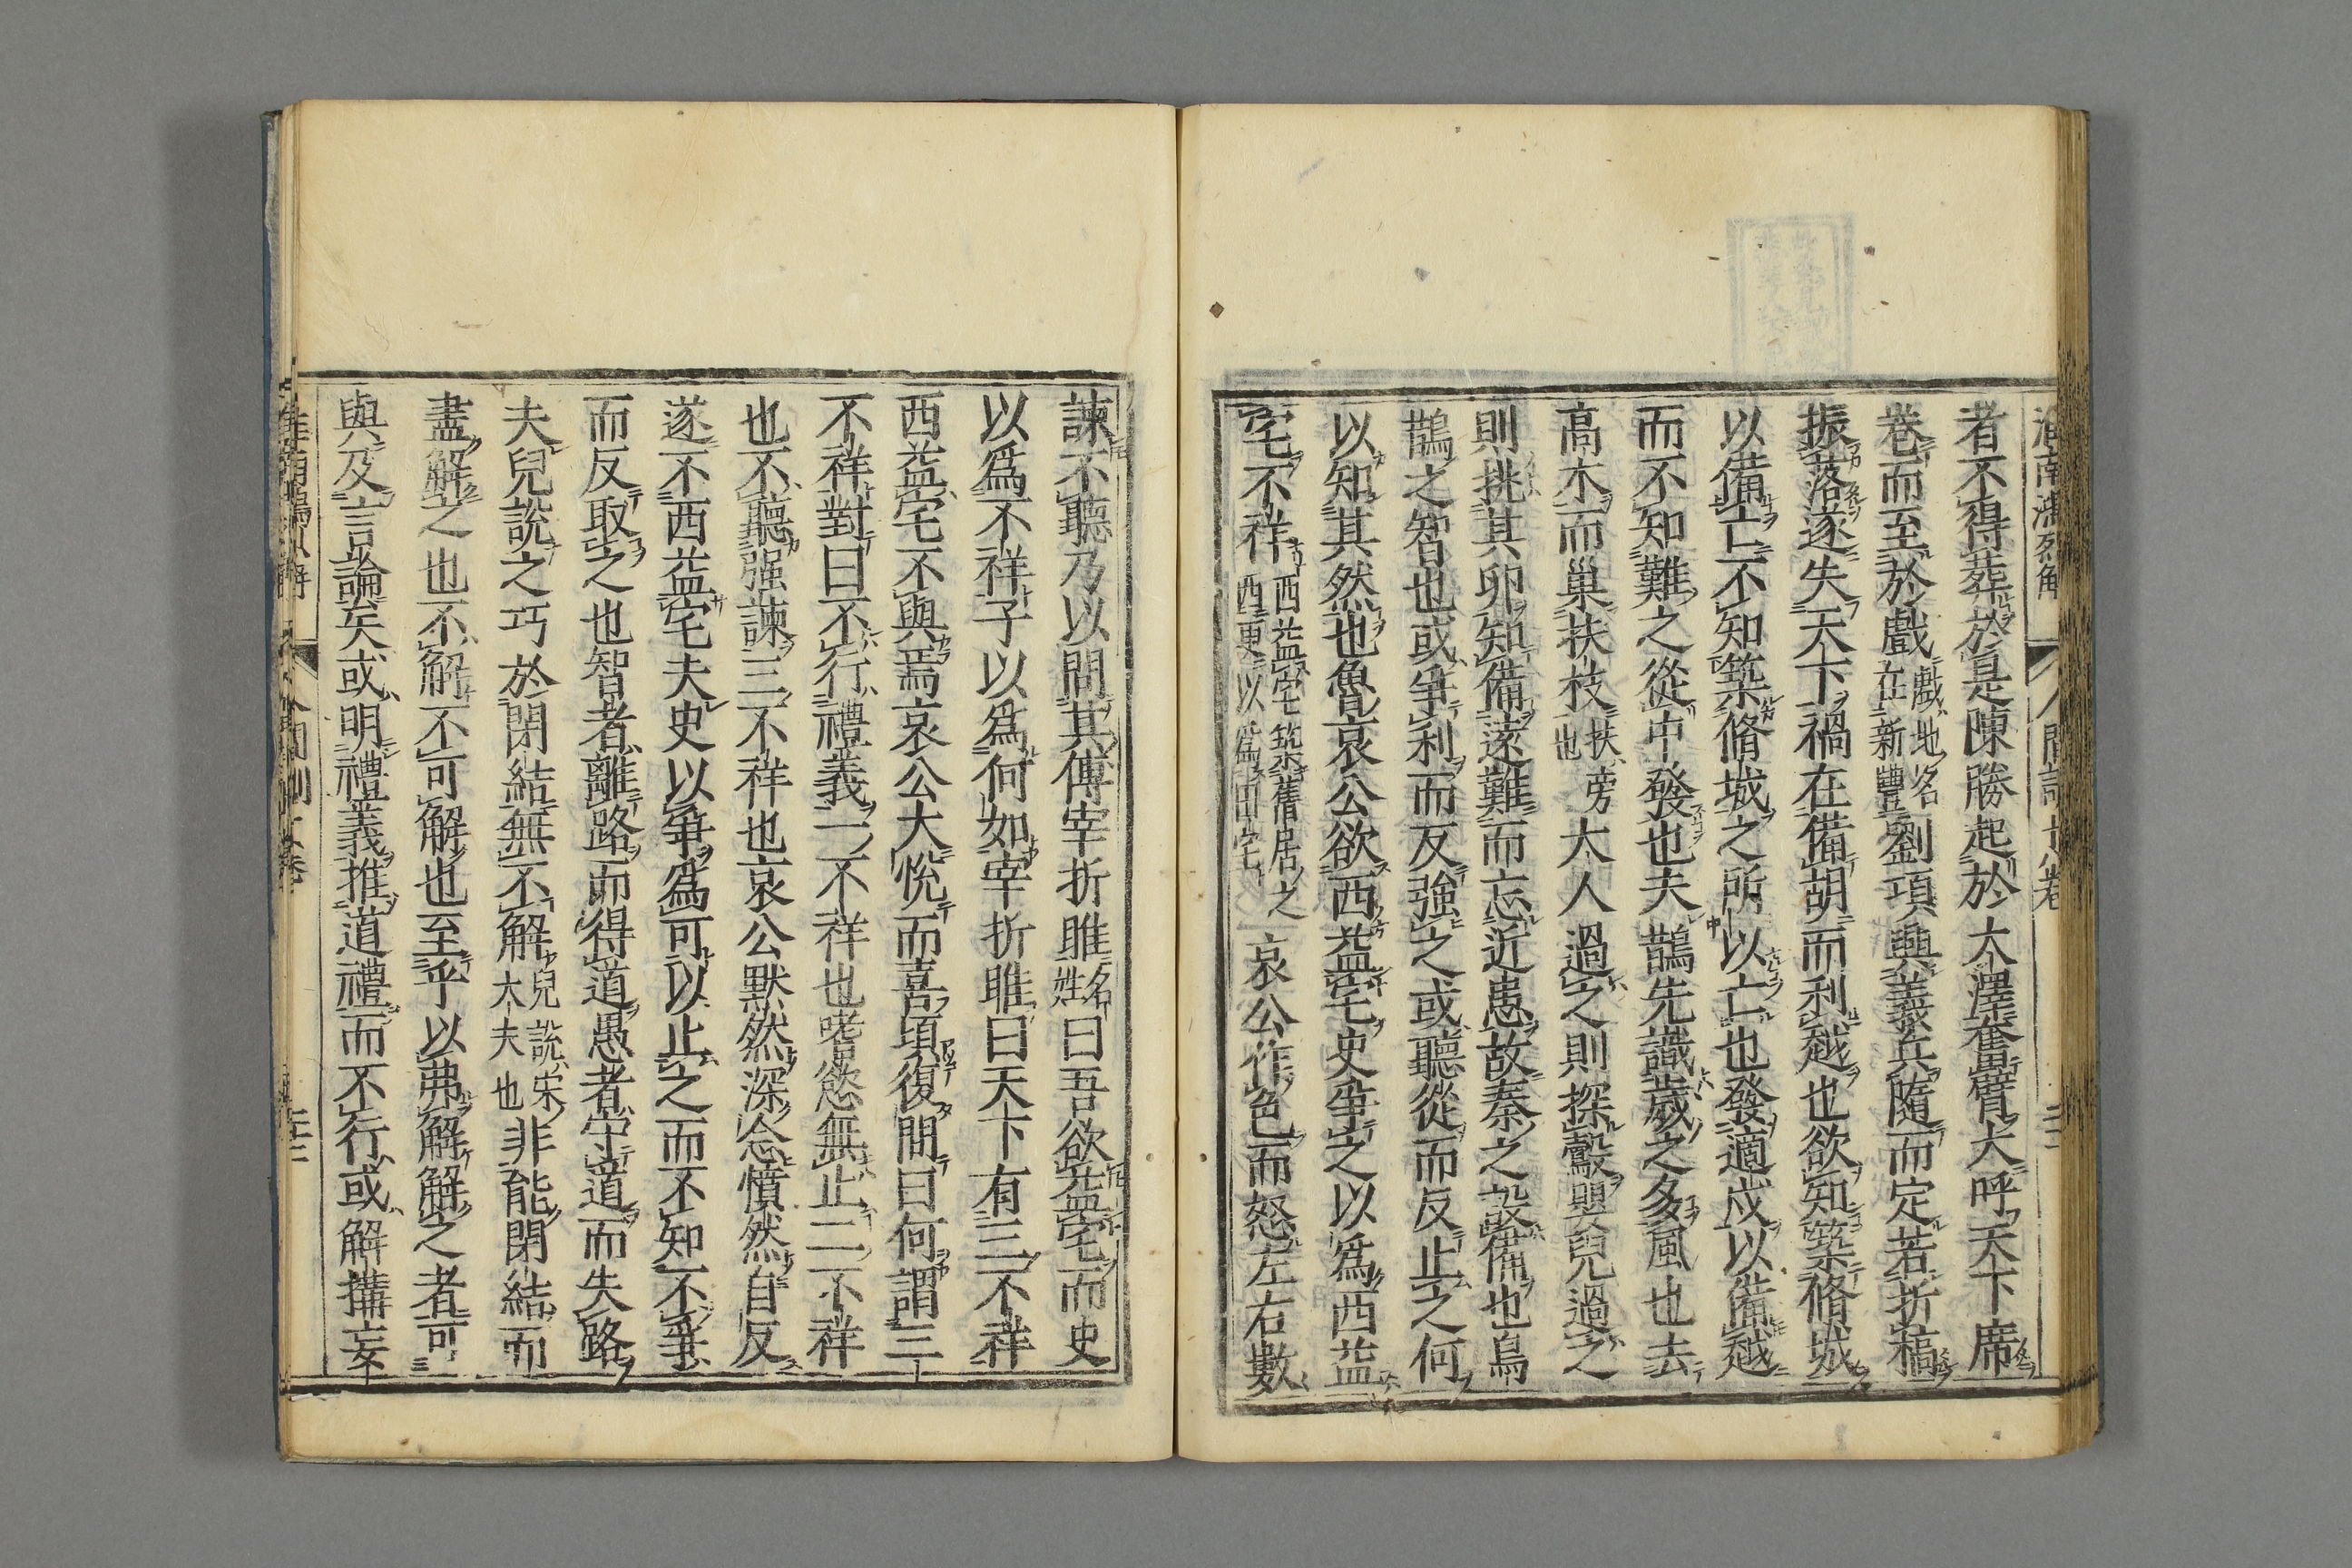 者不得葬於是陳勝起於大澤奮臂大呼天下席
卷而至於戲戲地名在新豐劉項興義兵隨而定若折槁
振落遂失天下禍在備胡而利越也欲知築脩城
以備亡不知築脩城之所以亡也發適戍以備越
而不知難之從中發也夫鵲先識歲之多風也去
高木而巢扶枝扶旁也大人過之則探鷇嬰兒過之
則挑其卵知備遠難而忘近患故秦之設備也烏
鵲之智也或爭利而反強之或聽從而反止之何
以知其然也魯哀公欲西益宅史爭之以爲西益
宅不祥西益宅築舊居之西更以爲田宅哀公作色而怒左右數
諫不聽乃以問其傅宰折睢名姓曰吾欲益宅而史
以爲不祥子以爲何如宰折睢曰天下有三不祥
西益宅不與焉哀公大悅而喜頃復問曰何謂三
不祥對曰不行禮義一不祥也嗜慾無止二不祥
也不聽强諫三不祥也哀公默然深念憤然自反
遂不西益宅夫史以爭爲可以止之而不知不爭
而反取之也智者離路而得道愚者守道而失路
夫兒說之巧於閉結無不解兒說宋大夫也非能閉結而
盡解之也不解不可解也至乎以弗解解之者可
與及言論矣或明禮義推道禮而不行或解搆妄